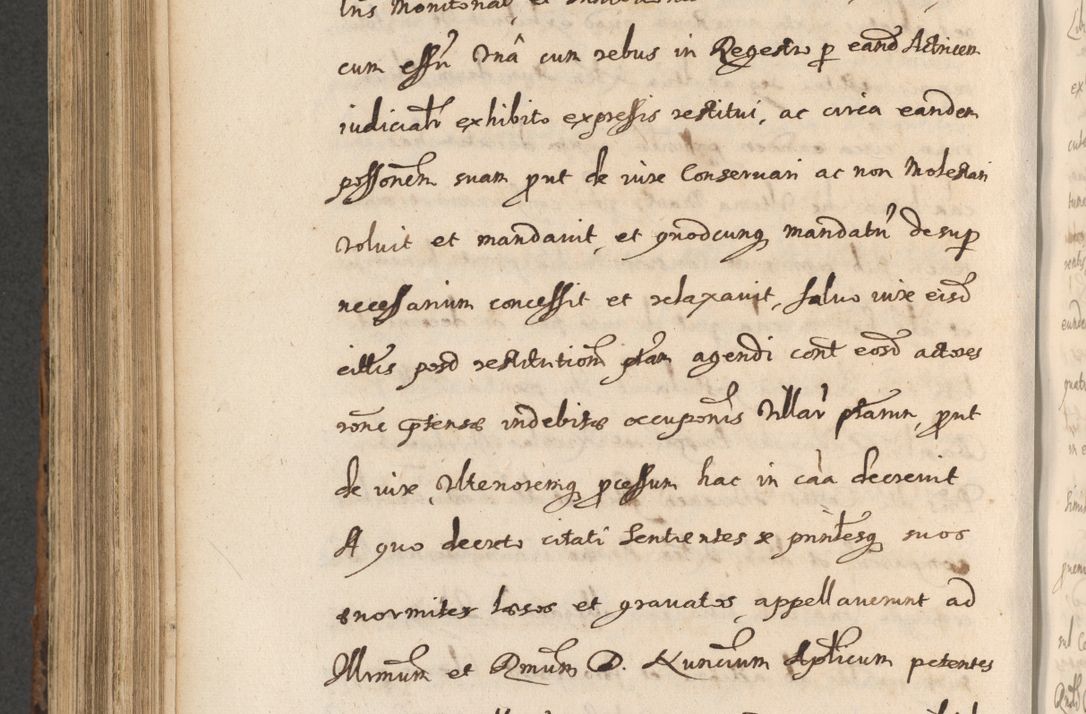 cum effñ Vnâ cum rebus in Regestro p eand̃ Actricem
iudicialr̃ exhibito expressis restitui, ac circa eandem
possonẽm suam prout de iure Conseruari ac non Molestari
voluit et mandauit, et quodcunq mandatũ desup
necessarium concessit et relaxauit, saluo iure eisd̃
cittis post restitution̄ ptam agendi cont̃ eosd̃ actores
rõne ptensæ indebitæ occuponĩs Villar̃ ptarum, prout
de iure, Vlterioremq pcessum hac in cãa decreuit
A quo decreto citati Sentientes se pnntesq suos
enormiter læsos et grauatos, appellauerunt ad
Illrmum et Rmum D. Nuncium Aplicum petentes